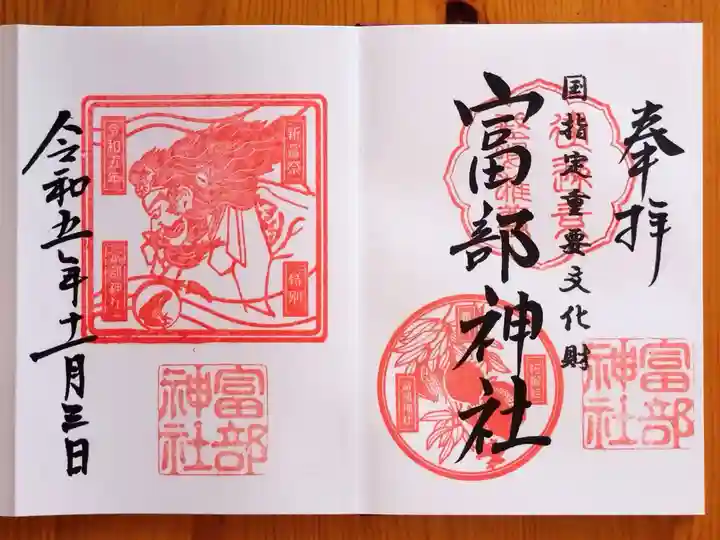 奉拝
国指定重要文化財
富部神社
富部神社
令和五年十一月三日
新嘗祭
令和五年
特別
富部神社
富部神社